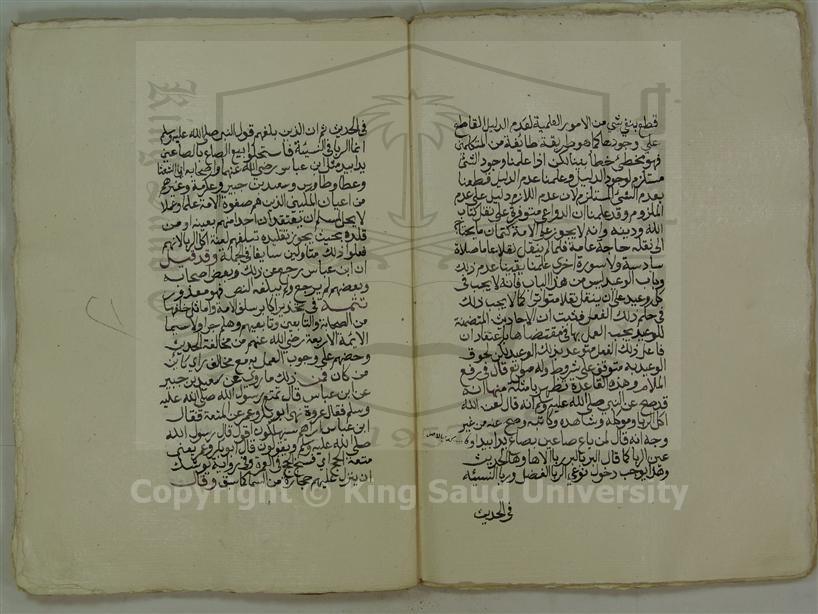 قطع بنفي شي من الامور العلمية لعدم الدليل القاطع
على وجودها كما هو طريقة طائفة من المتكلمين
فهو مخطي خطأ بينا لكن اذا علمنا وجود الشي
مستلزم لوجود الدليل وعلمنا عدم الدليل قطعنا
بعدم الشي المستلزم لان عدم اللازم دليل على عدم
الملزوم وقد علمنا ان الدواعي متوفرة على نقل كتاب
الله ودينه وانه لا يجوز على الامة كتمان ما يحتاج
الى نقله حاجة عامة فلما لم ينقل نقلا عاما صلاة
سادسة ولا سورة اخرى علمنا يقينا عدم ذلك
وباب الوعيد ليس من هذا الباب فانه لا يجب في
كل وعيد على ان ينقل نقلا متواترا كما لا يجب ذلك
في حكم ذلك الفعل فثبت ان الاحاديث المتضمنة
للوعيد يجب العمل بها في مقتضاها باعتقاد ان
فاعل ذلك الفعل متوعد بذلك الوعيد لكن لحوق
الوعيد به متوقف على شروط وله موانع قال في رفع
الملام وهذه القاعدة تظهر بامثلة منها انه
قد صح عن النبي صلى الله عليه وسلم انه قال لعن الله
اكل الربا وموكله وشاهده وكاتبه وصح عنه من غير
وجه انه قال لمن باع صاعين بصاع يدا بيد اوه
عين الربا كما قال البر بالبر ربا الا ها وها الحديث
وهذا يوجب دخول نوعي الربا ربا الفضل وربا النسيئة
في الحديث
في الحديث ثم ان الذين بلغهم قول النبي صلى الله عليه وسلم
انما الربا في النسيئة فاستحلوا بيع الصاع بالصاعين
يدا بيد مثل ابن عباس رضي الله عنهما واصحابه ابي الشعثا
وعطا وطاوس وسعيد بن جبير وعكرمة وغيرهم
من اعيان المكيين الذين هم صفوة الامة علما وعملا
لا يحل لمسلم ان يعتقد ان احدا منهم بعينه او من
قلده بحيث يجوز تقليده تبلغهم لعنة اكل الربا لانهم
فعلوا ذلك متاولين سايغا في الجملة وقد قيل
ان ابن عباس رجع عن ذلك وبعض اصحابه
وبعضهم لم يرجع ولم يبلغه النص فهو معذور
تتمة في تحذير اكابر سلف الامة واماثل خلفها
من الصحابة والتابعين وتابعيهم وهلم جرا ولا سيما
الائمة الاربعة رضي الله عنهم من مخالفة الحديث
وحضهم على وجوب العمل به مع مخالف راي كاينا
من كان فمن ذلك ما روي عن سعيد بن جبير
عن ابن عباس قال تمتع رسول الله صلى الله عليه
وسلم فقال عروة نهى ابو بكر وعمر عن المتعة فقال
ابن عباس اراهم سيهلكون اقول قال رسول الله
صلى الله عليه وسلم ويقولون قال ابو بكر وعمر يعني
متعة الحج اي فسخ الحج الى العمرة وفي رواية يوشك
ان ينزل عليهم حجارة من السما كما سبق وقال
Copyright © King Saud University
1957